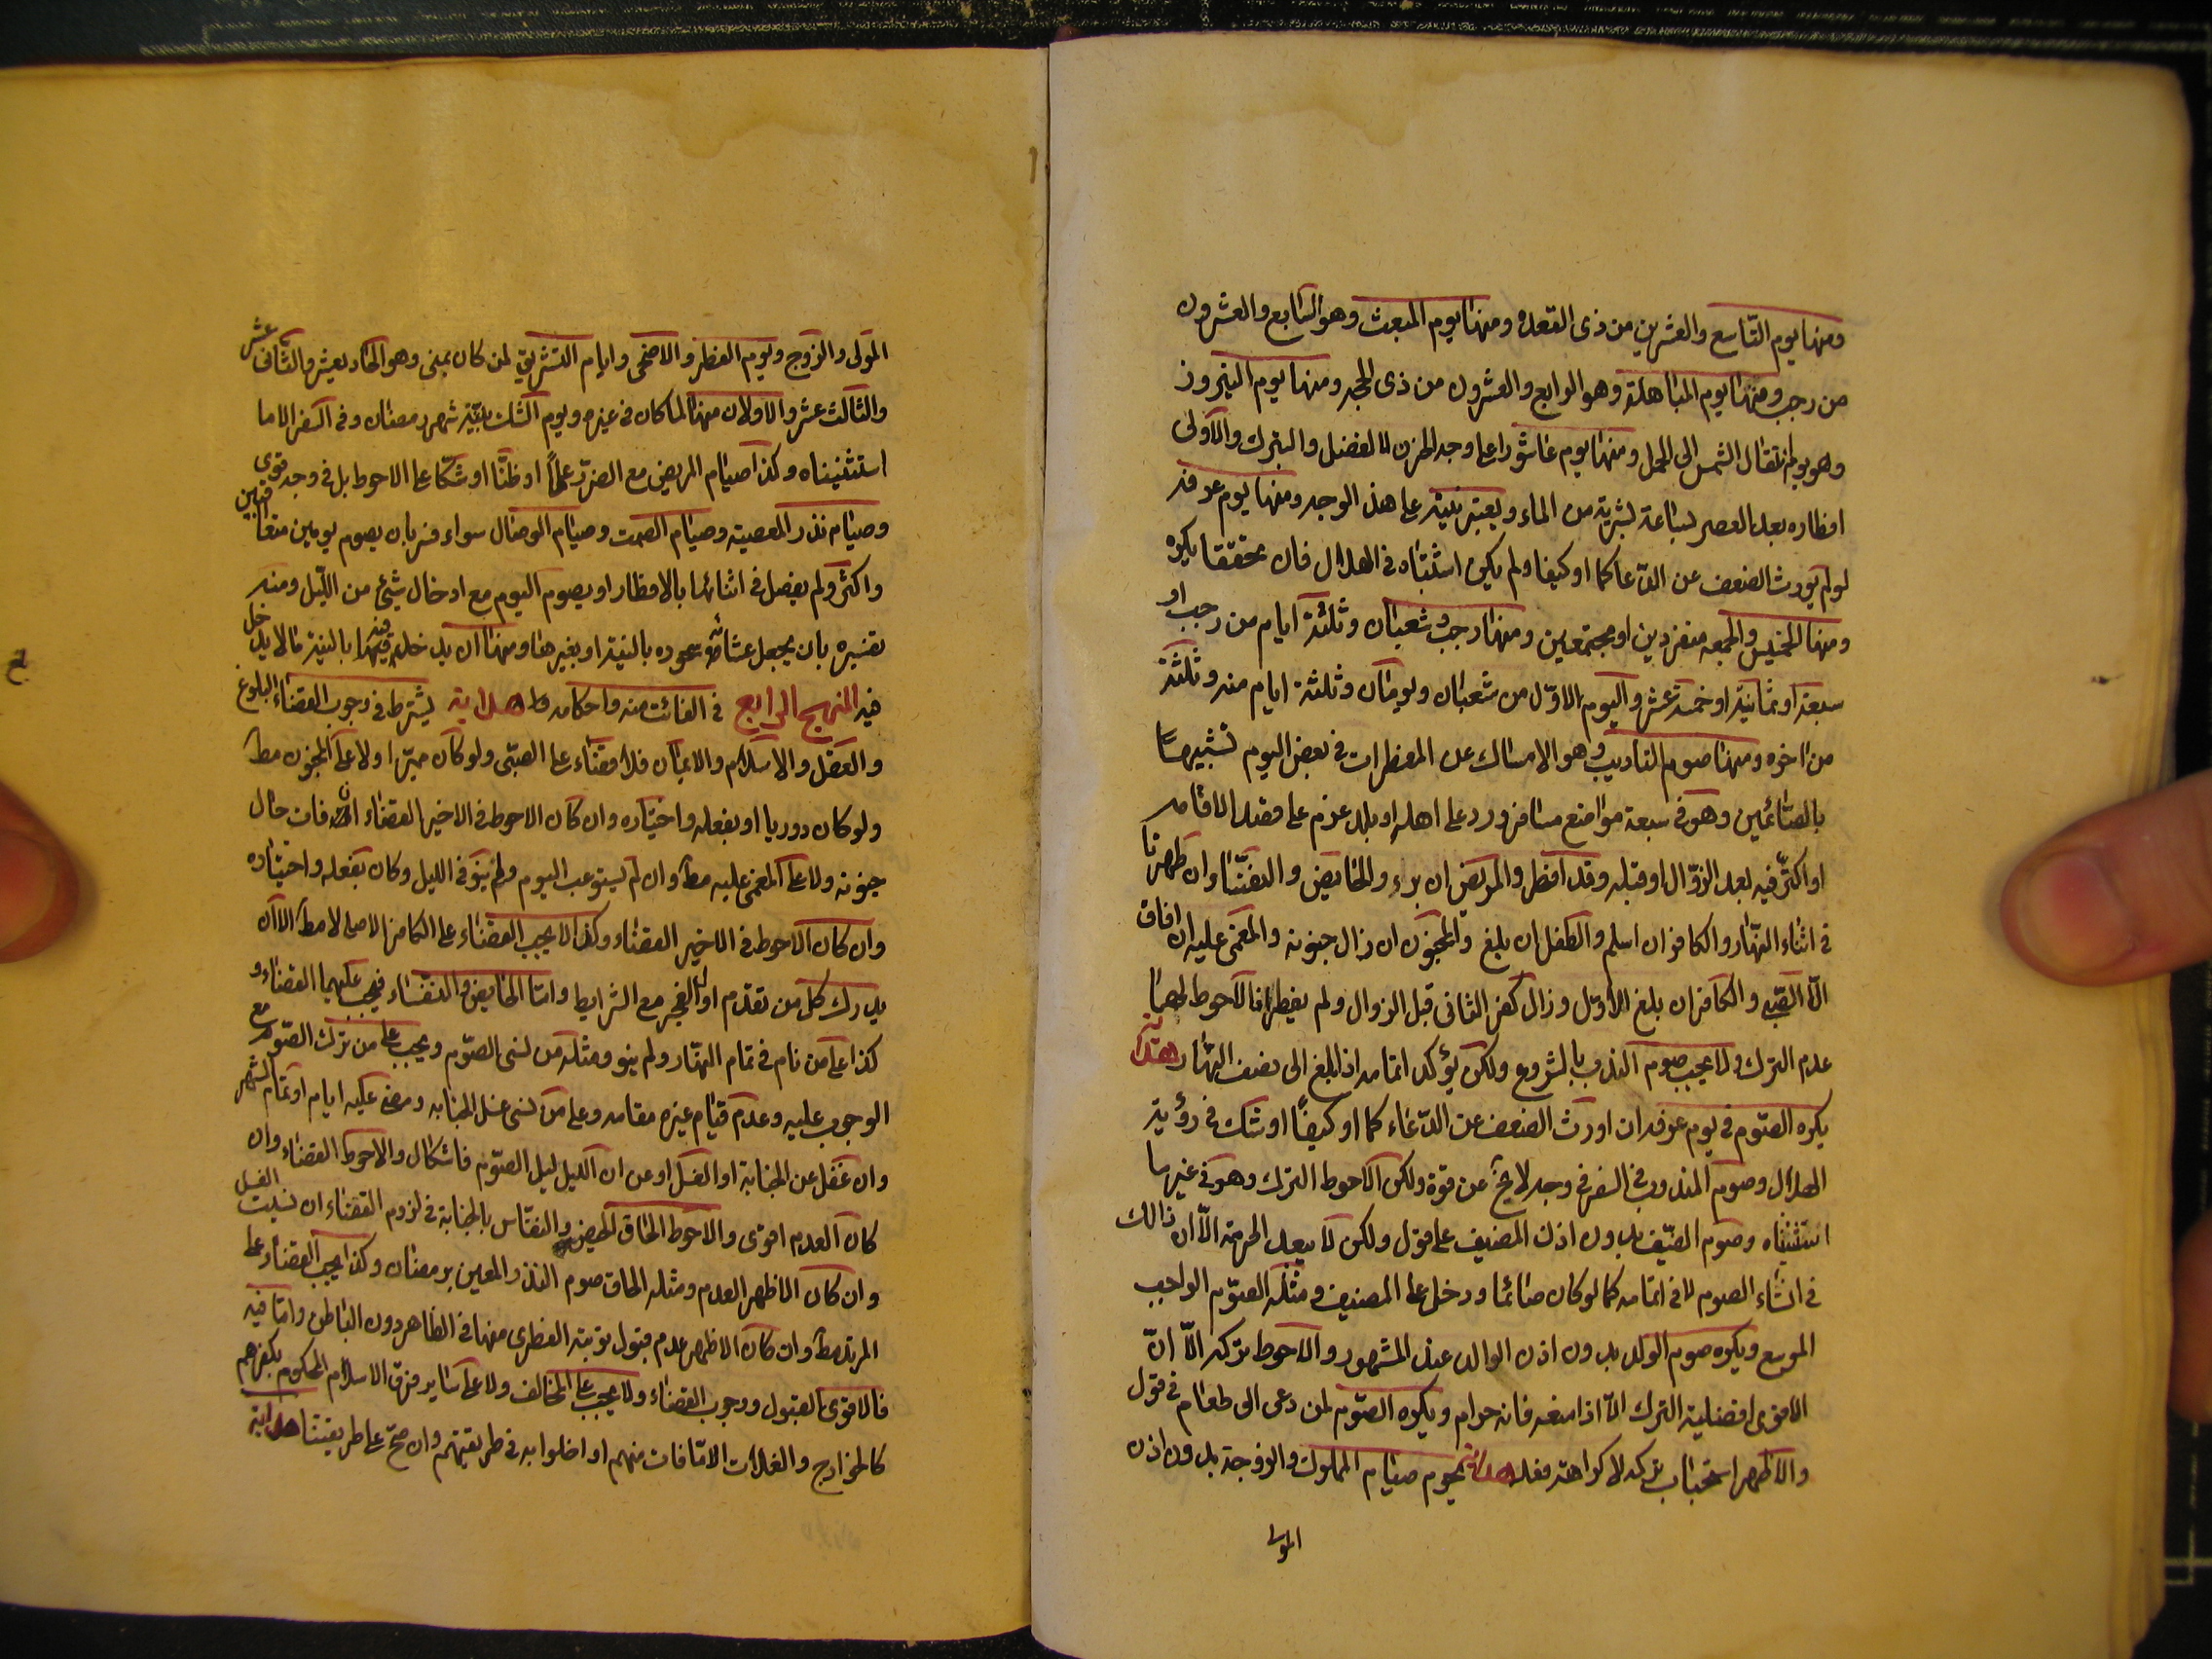 ومنها يوم التاسع والعشرين من ذى القعده ومنها يوم المبعث وهو السابع والعشرون
من رجب ومنها يوم المباهلة وهو الرابع والعشرون من ذى الحجه ومنها يوم النيروز
وهو يوم انتقال الشمس الى الحمل ومنها يوم عاشورا على وجه الحزن لا لفضل والتبرك والاولى
افطاره بعد العصر بساعة بشربة من الماء ويعتبر نيته على هذا الوجه ومنها يوم عرفه
لو لم يورث الضعف عن الدعا كما او كيفا ولم يكن اشتباه فى الهلال فان تحققا يكره
ومنها الخميس والجمعه منفردين او مجتمعين ومنها رجب وشعبان وثلثة ايام من رجب او
سبعة او ثمانية او خمسة عشر واليوم الاول من شعبان ويومان وثلثة ايام منه وثلثة
من اخره ومنها صوم التاديب وهو الامساك عن المفطرات فى بعض اليوم تشبيها
بالصائمين وهو فى سبعة مواضع مسافر ورد على اهله او بلد عزم على الاقامه
او اكثر فيه بعد الزوال او قبله وقد افطر والمريض ان برء والحايض والنفساء ان طهرتا
فى اثناء النهار والكافر ان اسلم والطفل ان بلغ والمجنون ان زال جنونه والمغمى عليه ان افاق
الا الصبى والكافر ان بلغ الاول وزال كفر الثانى قبل الزوال ولم يفطرا فالاحوط لهما
عدم الترك ولا يجب صوم الندب بالشروع ولكن يؤكد اتمامه اذا بلغ الى نصف النهار هداية
يكره الصوم فى يوم عرفه ان اورث الضعف عن الدعاء كما او كيفا او شك فى رؤية
الهلال وصوم المندوب فى السفر فى وجه لا يخ عن قوة ولكن الاحوط الترك وهو فى غير ما
استثنيناه وصوم الضيف بدون اذن المضيف على قول ولكن لا يبعد الحرمة الا ان ذالك
فى انشاء الصوم لا فى اتمامه كما لو كان صائما ودخل على المضيف ومثله الصوم الواجب
الموسع ويكره صوم الولد بدون اذن الوالد عند المشهور والاحوط تركه الا ان
الاقوى افضلية الترك الا اذا منعه فانه حرام ويكره الصوم لمن دعى الى طعام فى قول
والاظهر استحباب تركه لا كراهة فعله هداية يحرم صيام المملوك والزوجة بدون اذن
المولى
المولى والزوج ويوم الفطر والاضحى وايام التشريق لمن كان بمنى وهو الحاديعشر والثانى عشر
والثالث عشر والاولان منها لما كان فى غيره ويوم الشك بنية شهر رمضان وفى السفر الا ما
استثنيناه وكذا صيام المريض مع الضرر علما او ظنا او شكا على الاحوط بل فى وجه قوى
وصيام نذر المعصية وصيام الصمت وصيام الوصال سواء فسر بان يصوم يومين متعاقبين
واكثر ولم يفصل فى اثنائها بالافطار او يصوم اليوم مع ادخال شيئ من الليل ومنه
تفسيره بان يجعل عشائه سحوره بالنية او بغيرها ومنها ان يدخله فيهما بالنية ما لا يدخل
فيه المنهج الرابع فى الفائت منه واحكامه هداية يشترط فى وجوب القضاء البلوغ
والعقل والاسلام والايمان فلا قضاء على الصبى ولو كان مميزا ولا على المجنون مط
ولو كان دوريا او بفعله واختياره وان كان الاحوط فى الاخير القضاء ان فات حال
جنونه ولا على المغمى عليه مط وان لم يستوعب اليوم ولم ينو فى الليل وكان بفعله واختياره
وان كان الاحوط فى الاخير القضاء وكذا لا يجب القضاء على الكافر الاصلى لا مط الا ان
يدرك كل من تقدم اول الفجر مع الشرايط واما الحايض والنفساء فيجب عليهما القضاء و
كذا على من نام فى تمام النهار ولم ينو ومثله من نسى الصوم ويجب على من ترك الصوم مع
الوجوب عليه وعدم قيام غيره مقامه وعلى من نسى غسل الجنابه ومضى عليه ايام او تمام الشهر
وان غفل عن الجنابة او الغسل او عن ان الليل ليل الصوم فاشكال والاحوط القضاء وان
كان العدم اقوى والاحوط الحاق الحيض والنفاس بالجنابة فى لزوم القضاء ان نسيت الغسل
وان كان الاظهر العدم ومثله الحاق صوم النذر والمعين برمضان وكذا يجب القضاء على
المرتد مط وان كان الاظهر عدم قبول توبة الفطرى منها فى الظاهر دون الباطن واما فيه
فالاقوى القبول ووجوب القضاء ولا يجب على المخالف ولا على ساير فرق الاسلام المحكوم بكفرهم
كالخوارج والغلات الا ما فات منهم او اخلوا به فى طريقتهم وان صح على طريقتنا هداية